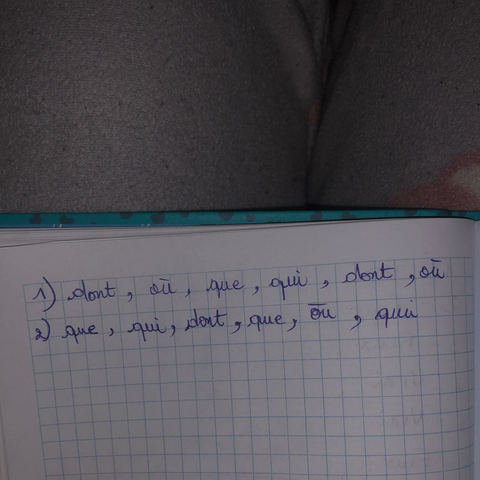 1) dont, où, que, qui, dont, où
2) que, qui, dont, que, où, qui